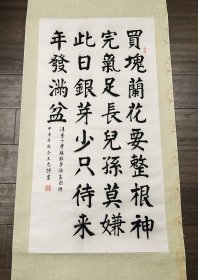 買塊蘭花要整根神
完氣足長兒孫莫嫌
此日銀芽少只待来
年發滿盆
清李方膺
甲午年